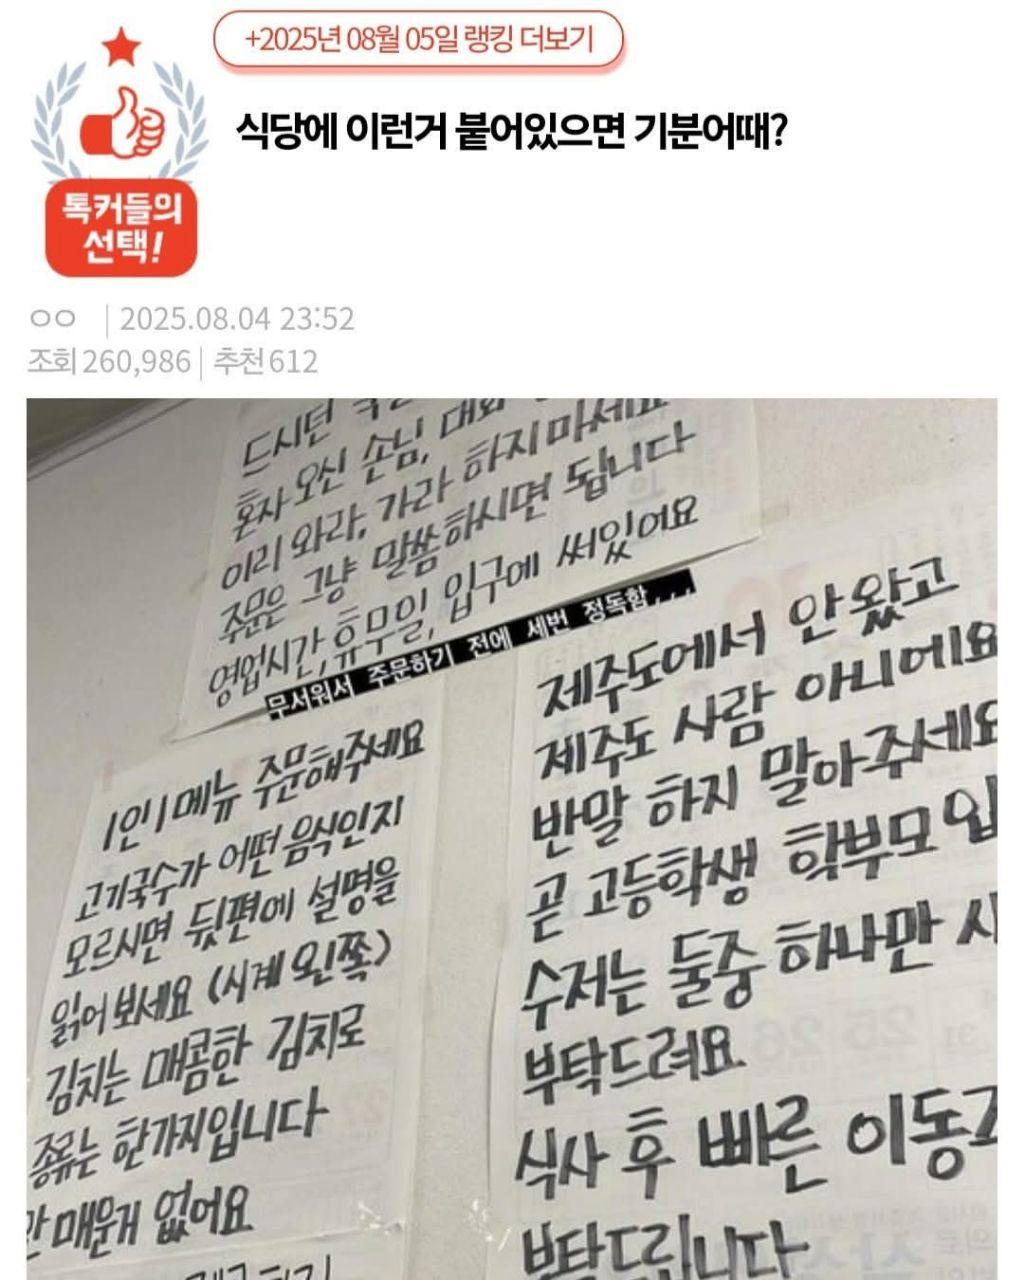 +2025년 08월 05일 랭킹 더보기
톡커들의
선택!
식당에 이런거 붙어있으면 기분어때?
ㅇㅇ | 2025.08.04 23:52
조회 260,986 | 추천 612
드시던
혼자 오신 손님, 대화
이리 와라, 가라 하지마세요
주문은 그냥 말씀하시면 됩니다
영업시간, 휴무일, 입구에 써있어요
무서워서 주문하기 전에 세번 정독함...
1인1메뉴 주문해주세요
고기국수가 어떤음식인지
모르시면 뒷편에 설명을
읽어보세요 (시계 왼쪽)
김치는 매콤한 김치로
종류는 한가지입니다
안매운거 없어요
제주도에서 안왔고
제주도 사람 아니에요
반말 하지 말아주세요
곧 고등학생 학부모
수저는 둘중 하나만
부탁드려요
식사 후 빠른 이동
부탁드립니다